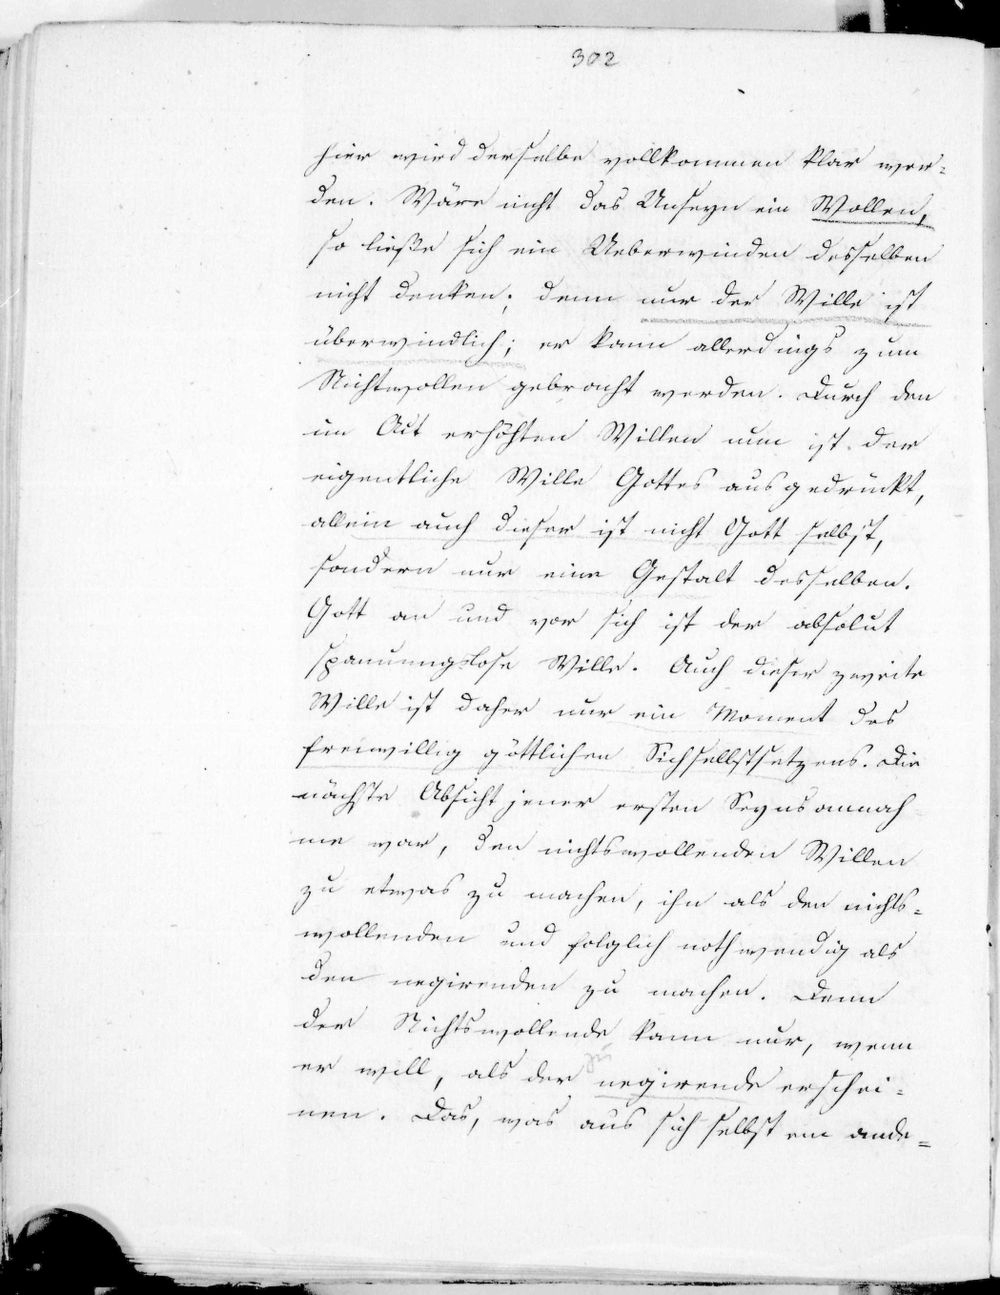 302
hier wird derselbe vollkommen klar wer-
den. Wäre nicht das Unseyn ein Wollen,
so ließe sich ein Ueberwinden desselben
nicht denken; denn nur der Wille ist
überwindlich; er kann allerdings zum
Nichtwollen gebracht werden. Durch den
im Act erhöhten Willen nun ist der
eigentliche Wille Gottes ausgedrückt,
allein auch dieser ist nicht Gott selbst,
sondern nur eine Gestalt desselben.
Gott an und vor sich ist der absolut
spannungslose Wille. Auch dieser zweite
Wille ist daher nur ein Moment des
freiwillig göttlichen Sichselbstsetzens. Die
nächste Absicht jener ersten Seynsannah
me war, den nichtswollenden Willen
zu etwas zu machen, ihn als den nichts-
wollenden und folglich nothwendig als
den negirenden zu machen. Denn
der Nichtswollende kann nur, wenn
er will, als der zu negirende erschei-
nen. Das, was aus sich selbst ein ande-